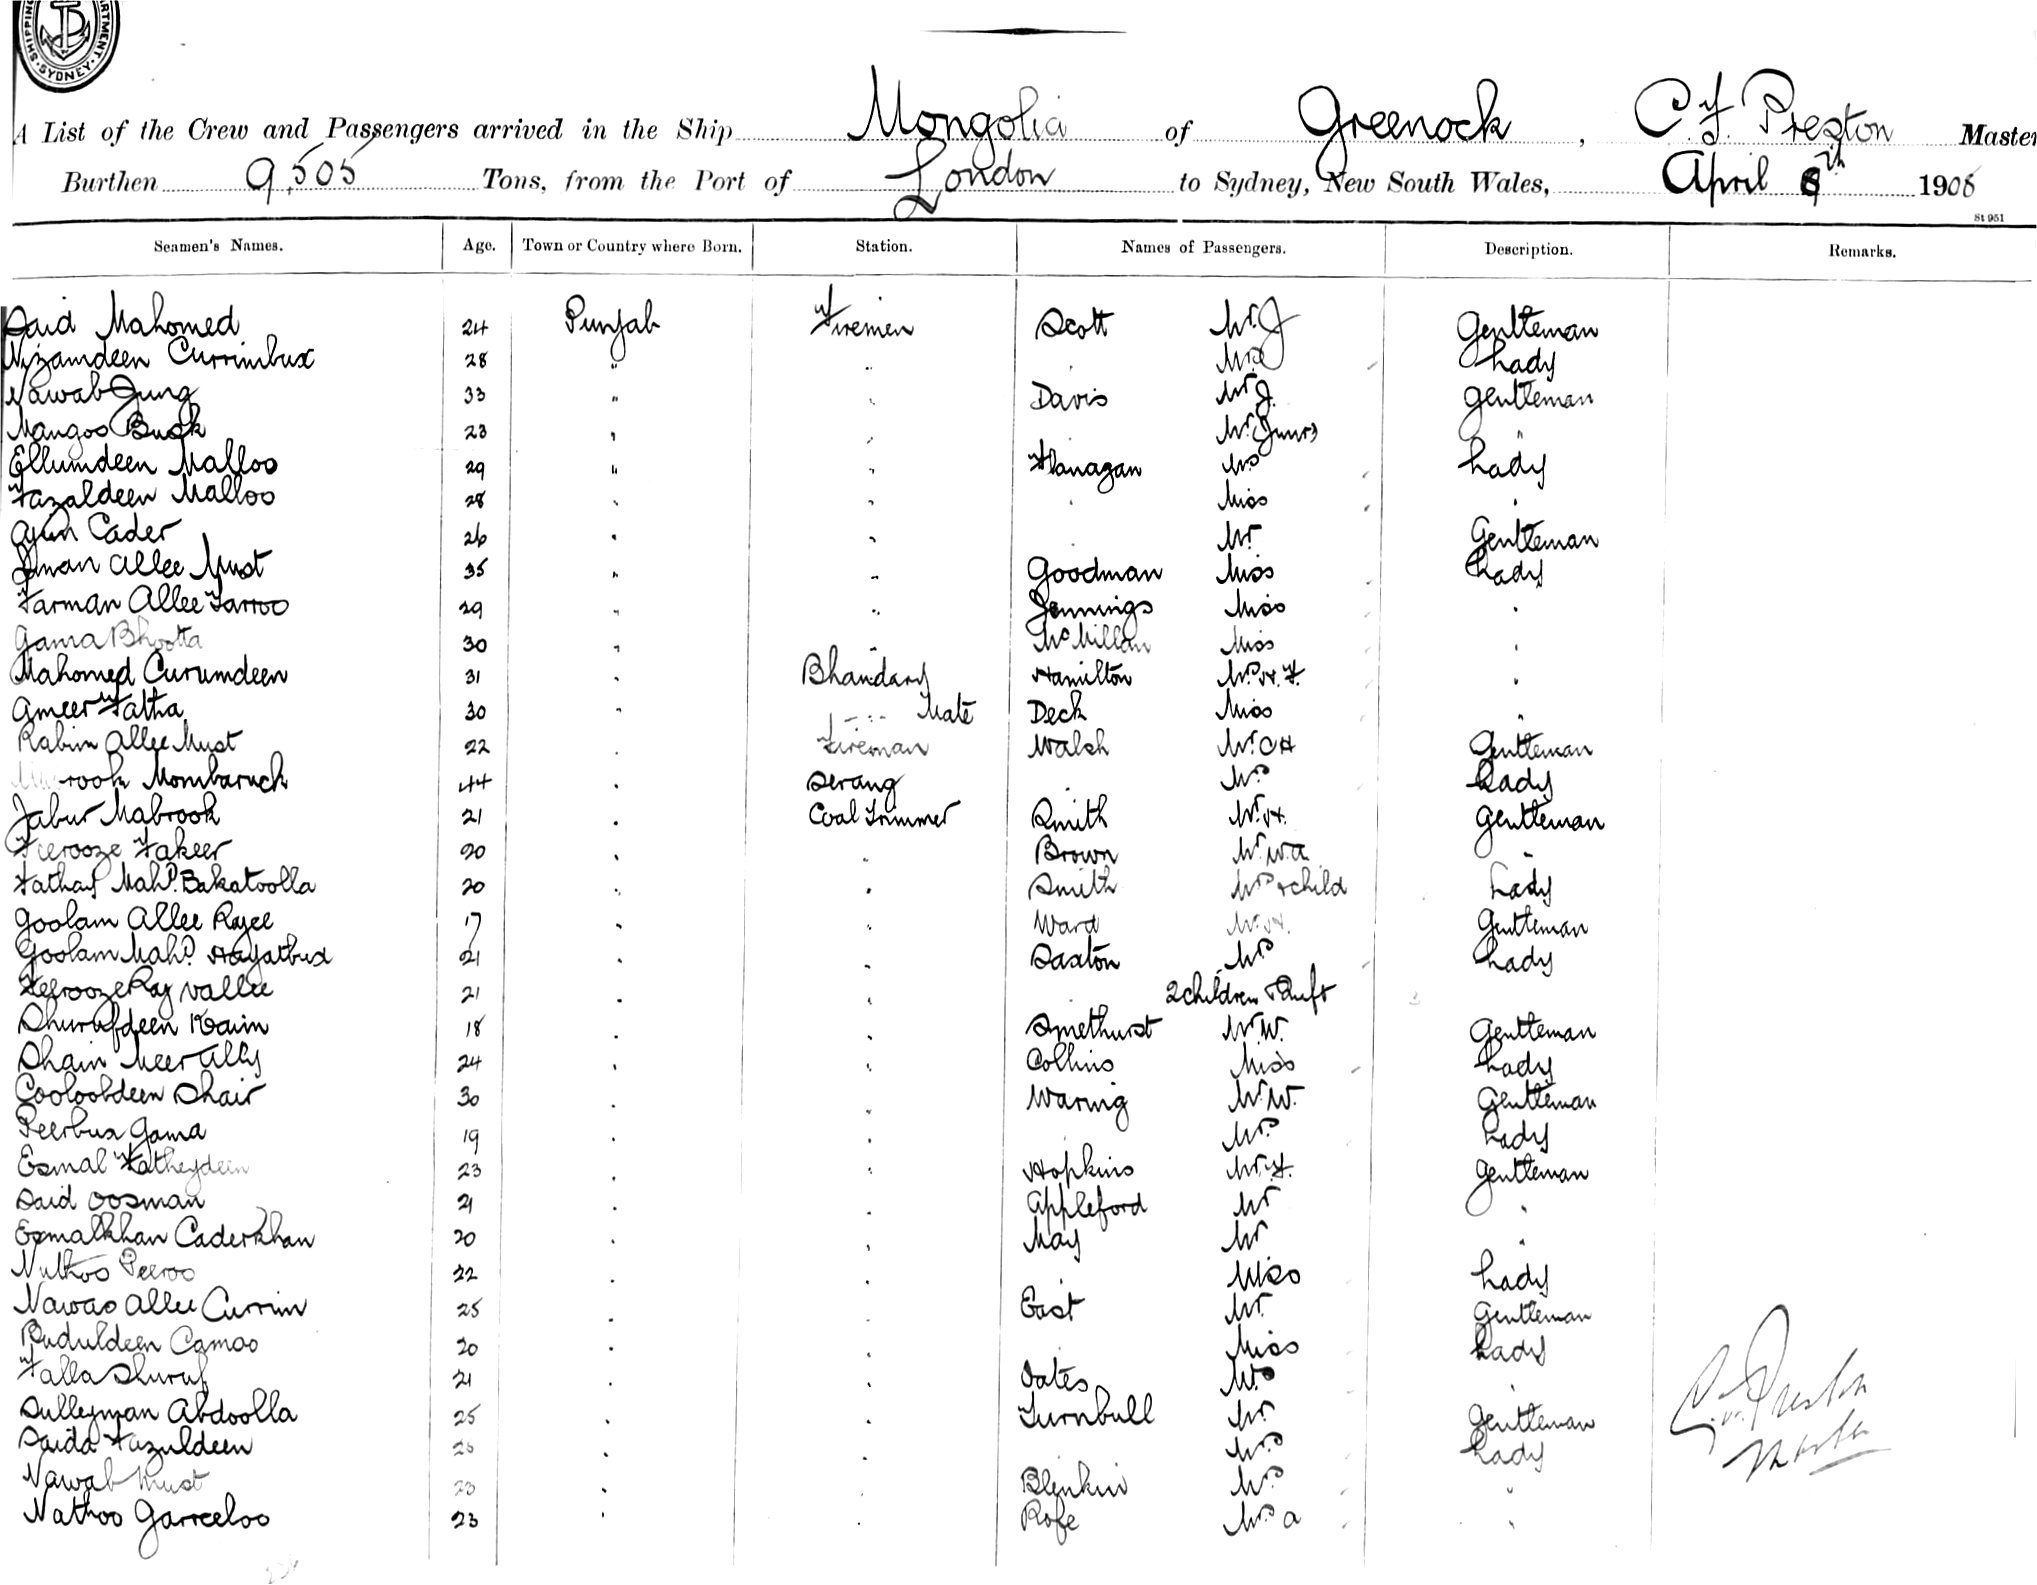 SHIPPING DEPARTMENT · SYDNEY ·
A List of the Crew and Passengers arrived in the Ship Mongolia of Greenock, C. F. Preston Master
Burthen 9,505 Tons, from the Port of London to Sydney, New South Wales, April 6th 1906
St 951
Seamen's Names. Age. Town or Country where Born. Station. Names of Passengers. Description. Remarks.
Said Mahomed 24 Punjab Firemen Scott Mr. J Gentleman
Nizamdeen Currimbux 28 " " " Mrs Lady
Nawab Jung 33 " " Davis Mr J. Gentleman
Mangoo Busk 23 " " Mr (Junr) "
Ellumdeen Malloo 29 " " Flanagan Mrs Lady
Fazaldeen Malloo 28 " " " Miss "
Cader 26 " " " Mr Gentleman
Iman Allee Must 35 " " Goodman Miss Lady
Farman Allee Farroo 29 " " Jennings Miss "
Gama Bhootta 30 " " McMillan Miss "
Mahomed Curumdeen 31 " Bhandary Hamilton Mrs. H. F. "
Ameer Fatha 30 " " Mate Deck Miss "
Rahim Allee Must 22 " Fireman Walsh Mr. C H Gentleman
Mombaruck 44 " Serang " Mrs Lady
Jabur Mabrook 21 " Coal Trimmer Smith Mr. H. Gentleman
Fierooze Fakeer 20 " " Brown Mr. W. A. "
Fathay Mahd. Bakatoolla 20 " " Smith Mrs & child Lady
Goolam Allee Rajee 17 " " Ward Mr. H. Gentleman
Goolam Mahd. Hayatbux 21 " " Saxton Mrs Lady
Feerooze Ray Vallee 21 " " 2 children & Inft
Shurufdeen Kaim 18 " " Smethurst Mr W. Gentleman
Shain Meer Ally 24 " " Collins Miss Lady
Cooloobdeen Shair 30 " " Waring Mr. W. Gentleman
Peerbux Gama 19 " " Mrs Lady
Esmal Fatheydeen 23 " " Hopkins Mr. F. Gentleman
Said Oosman 21 " " Appleford Mr "
Esmalkhan Caderkhan 20 " " May Mr "
Nuthoo Peeroo 22 " " Miss Lady
Nawao Allee Currim 25 " " East Mr. Gentleman
Buduldeen Camoo 20 " " " Miss Lady
Falla Shuruf 21 " " Oates Mrs "
Sulleyman Abdoolla 25 " " Turnbull Mr Gentleman
Saida Fazuldeen 25 " " " Mrs Lady
Nawab Must 23 " " Blenkin Mrs "
Nathoo Garreeloo 23 " " Rofe Mrs. A "
Preston
Master